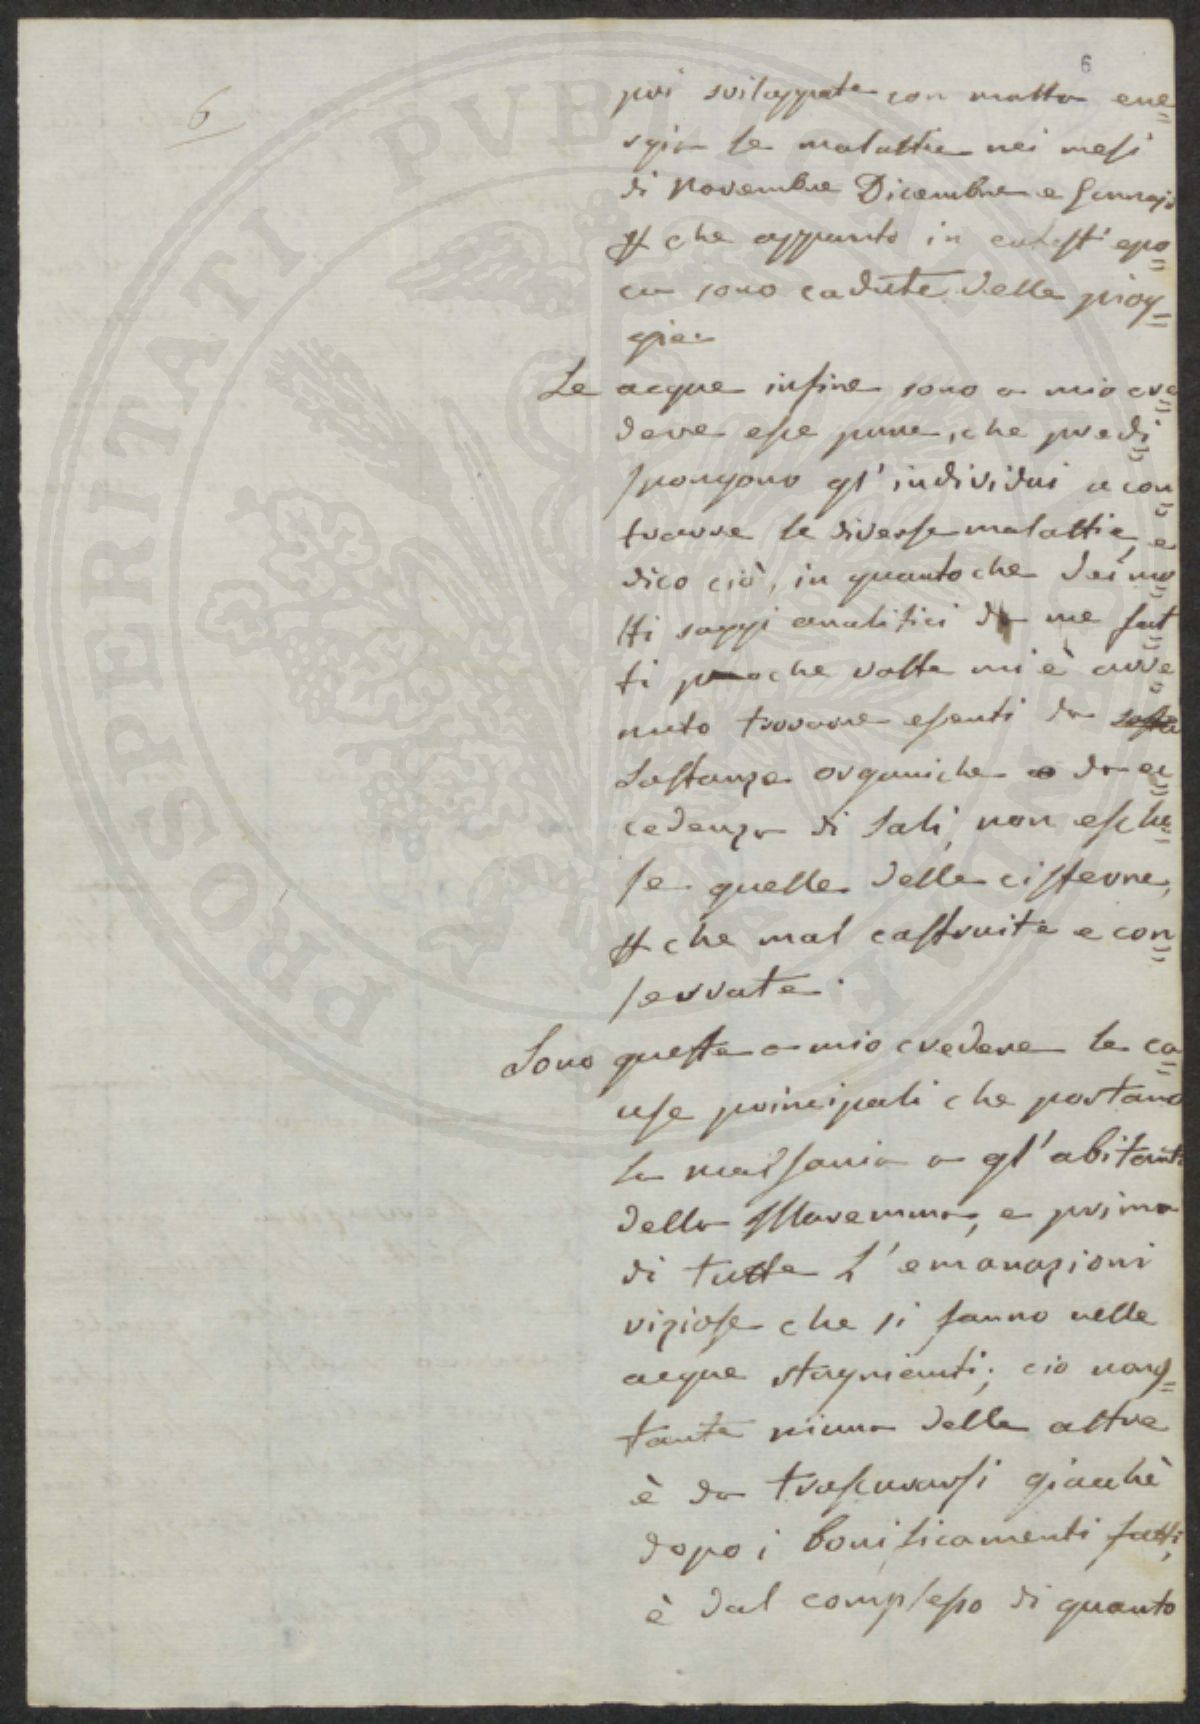 6
6
poi sviluppate con molta ene=
rgia le malattie nei mesi
di Novembre Dicembre e Gennajo
che appunto in cotesti epo=
ca sono cadute delle piog=
gie.
Le acque infine sono a mio cre=
dere esse pure, che predi=
spongono gl'individui a con=
trarre le diverse malattie, e
dico ciò, in quantoche dei mo=
lti saggi analitici da me fat=
ti poche volte mi è avve=
nuto trovarne esenti da sosta
Sostanze organiche o da ec=
cedenza di Sali, non esclu=
se quelle delle cisterne,
che mal costruite e con=
servate.
Sono queste a mio credere le ca=
use principali che portano
la mal'sania a gl'abitanti
della Maremma, e prima
di tutte L'emanazioni
viziose che si fanno nelle
acque stagnianti; cio nons=
tante niuna delle altre
è da trascurarsi giacchè
dopo i bonificamenti fatti,
è dal complesso di quanto
PROSPERITATI PVBLICAE